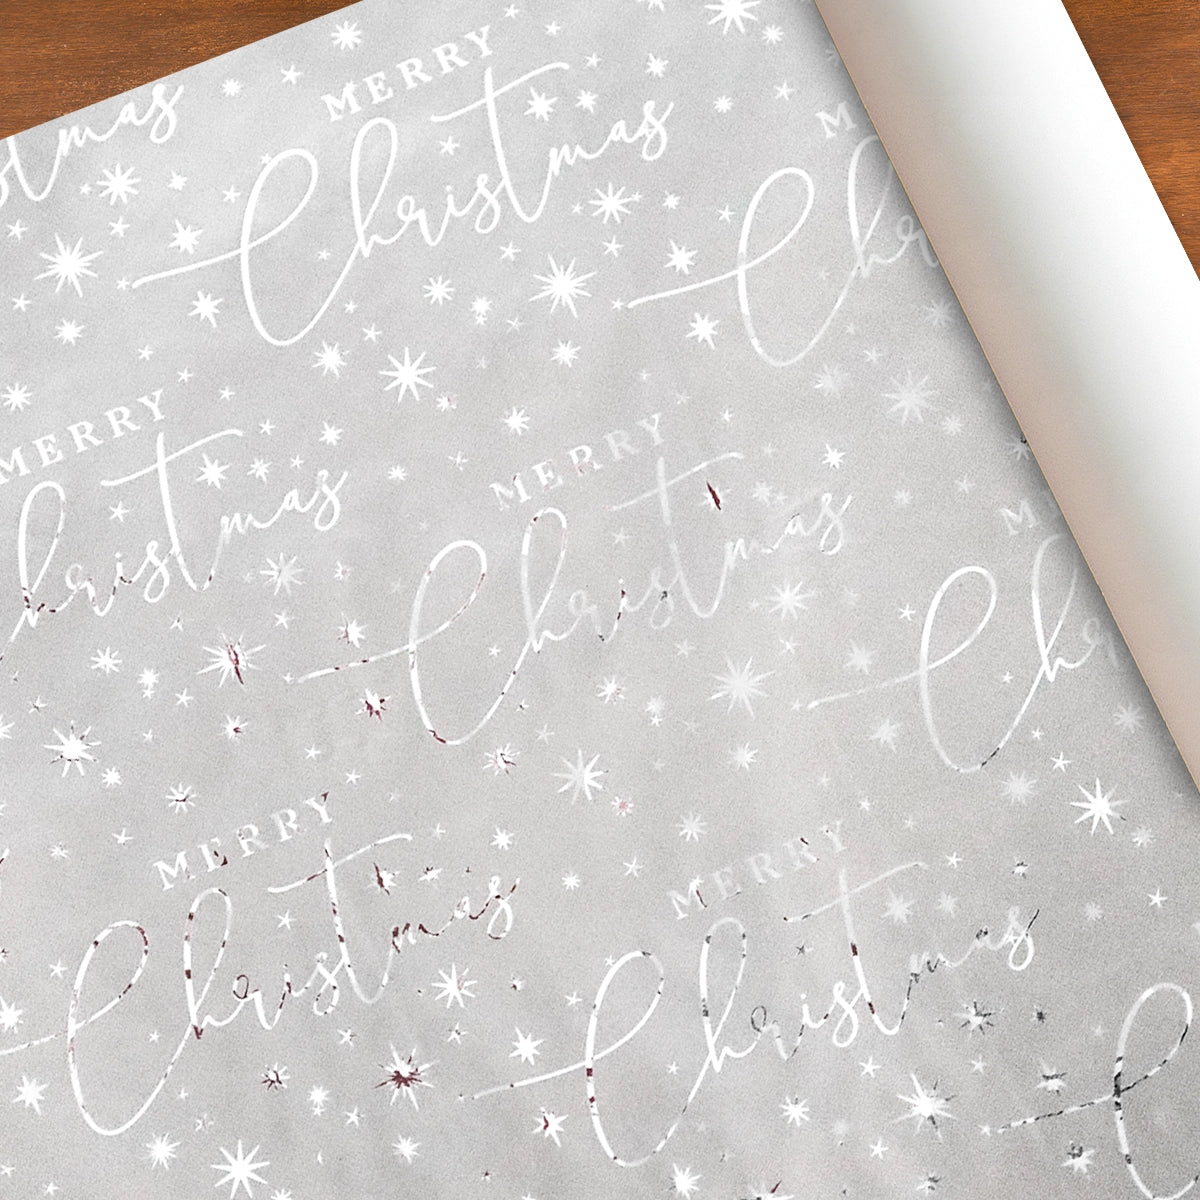 MERRY
Christmas
mas
M
Chr
MERRY
hristmas
MERRY
Christmas
M
Chr
MERRY
Christmas
MERRY
Christmas